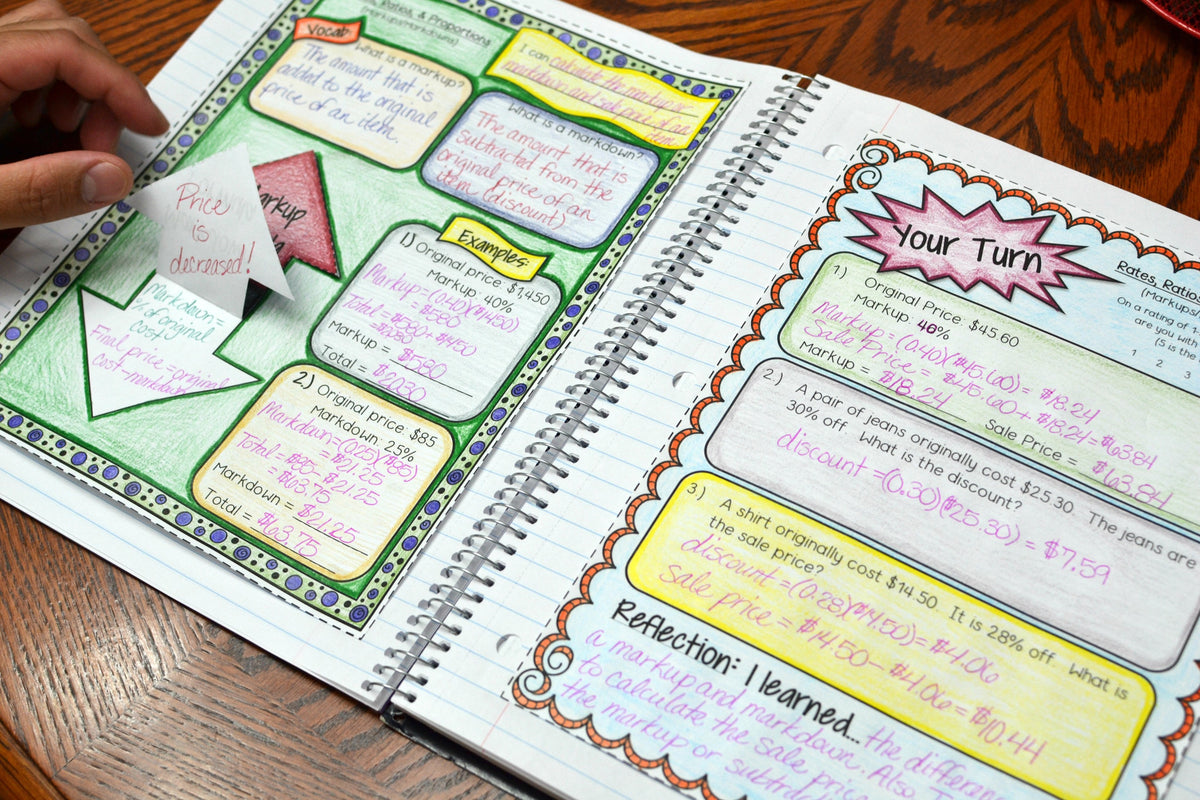 Ratios, & Proportions
(Markups/Markdowns)
Vocab:
What is a markup?
The amount that is
added to the original
price of an item.
I can calculate the markup or
markdown and sale price of an
item.
What is a markdown?
The amount that is
subtracted from the
original price of an
item (discount)
Price
is
decreased!
Markup
Markdown =
% of original
cost
Final price = original
cost - markdown
Examples:
1) Original price: $1,450
Markup: 40%
Markup = (0.40)($1450)
= $580
Total = $580 + $1450
= $2030
Markup = $580
Total = $2030
2) Original price: $85
Markdown: 25%
Markdown = (0.25)($85)
= $21.25
Total = $85 - $21.25
= $63.75
Markdown = $21.25
Total = $63.75
Your Turn
Rates, Ratio
(Markups/
On a rating of 1-
are you with
(5 is the
1 2 3
1) Original Price: $45.60
Markup: 40%
Markup = (0.40)($45.60) = $18.24
Sale Price = $45.60 + $18.24 = $63.84
Markup = $18.24
Sale Price = $63.84
2.) A pair of jeans originally cost $25.30. The jeans are
30% off. What is the discount?
discount = (0.30)($25.30) = $7.59
3.) A shirt originally cost $14.50. It is 28% off. What is
the sale price?
discount = (0.28)($14.50) = $4.06
sale price = $14.50 - $4.06 = $10.44
Reflection: I learned... the differen
a markup and markdown. Also,
to calculate the sale price
the markup or subtra